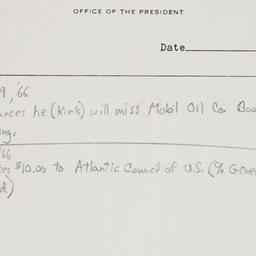 OFFICE OF THE PRESIDENT
Date
9, '66
nces he (Kirk) will miss Mobil Oil Co. Boa
ing.
'66
es $10.00 to Atlantic Council of U.S. (% Gene
d)